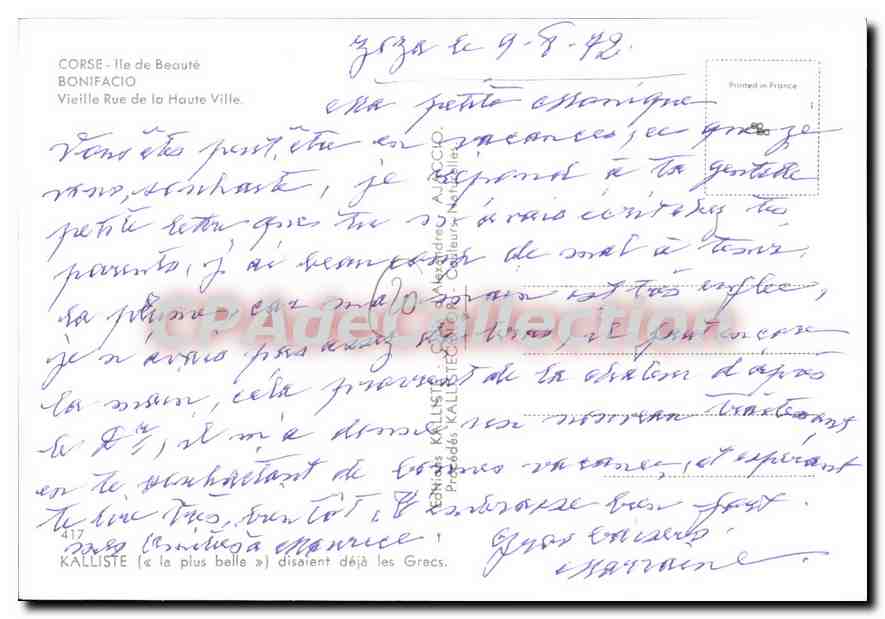 CORSE - Ile de Beauté
BONIFACIO
Vieille Rue de la Haute Ville.
Printed in France
Zoza le 9-8-72.
Ma petite Monique
Vous êtes peut, être en vacances, ce que je
vous, souhaite, je répond à ta gentille
petite lettre que tu m'avais écrite tes
parents, j'ai beaucoup de mal à tenir,
la plume, car ma main est très enflée,
je n'avais pas assez du bras, il faut encore
la main, cela provient de la chaleur d'après
le Dr, il m'a donné un nouveau traitement
en te souhaitant de bonnes vacances, et espérant
te lire très, bientôt, t'embrasse bien fort.
mes amitiés à Maurice.
Gros baisers.
Marraine.
20
Editions KALLISTE - Alexandre, AJACCIO.
Procédés KALLISTECOLOR - Couleurs Naturelles
CPAdeCollection
417
KALLISTE (« la plus belle ») disaient déjà les Grecs.